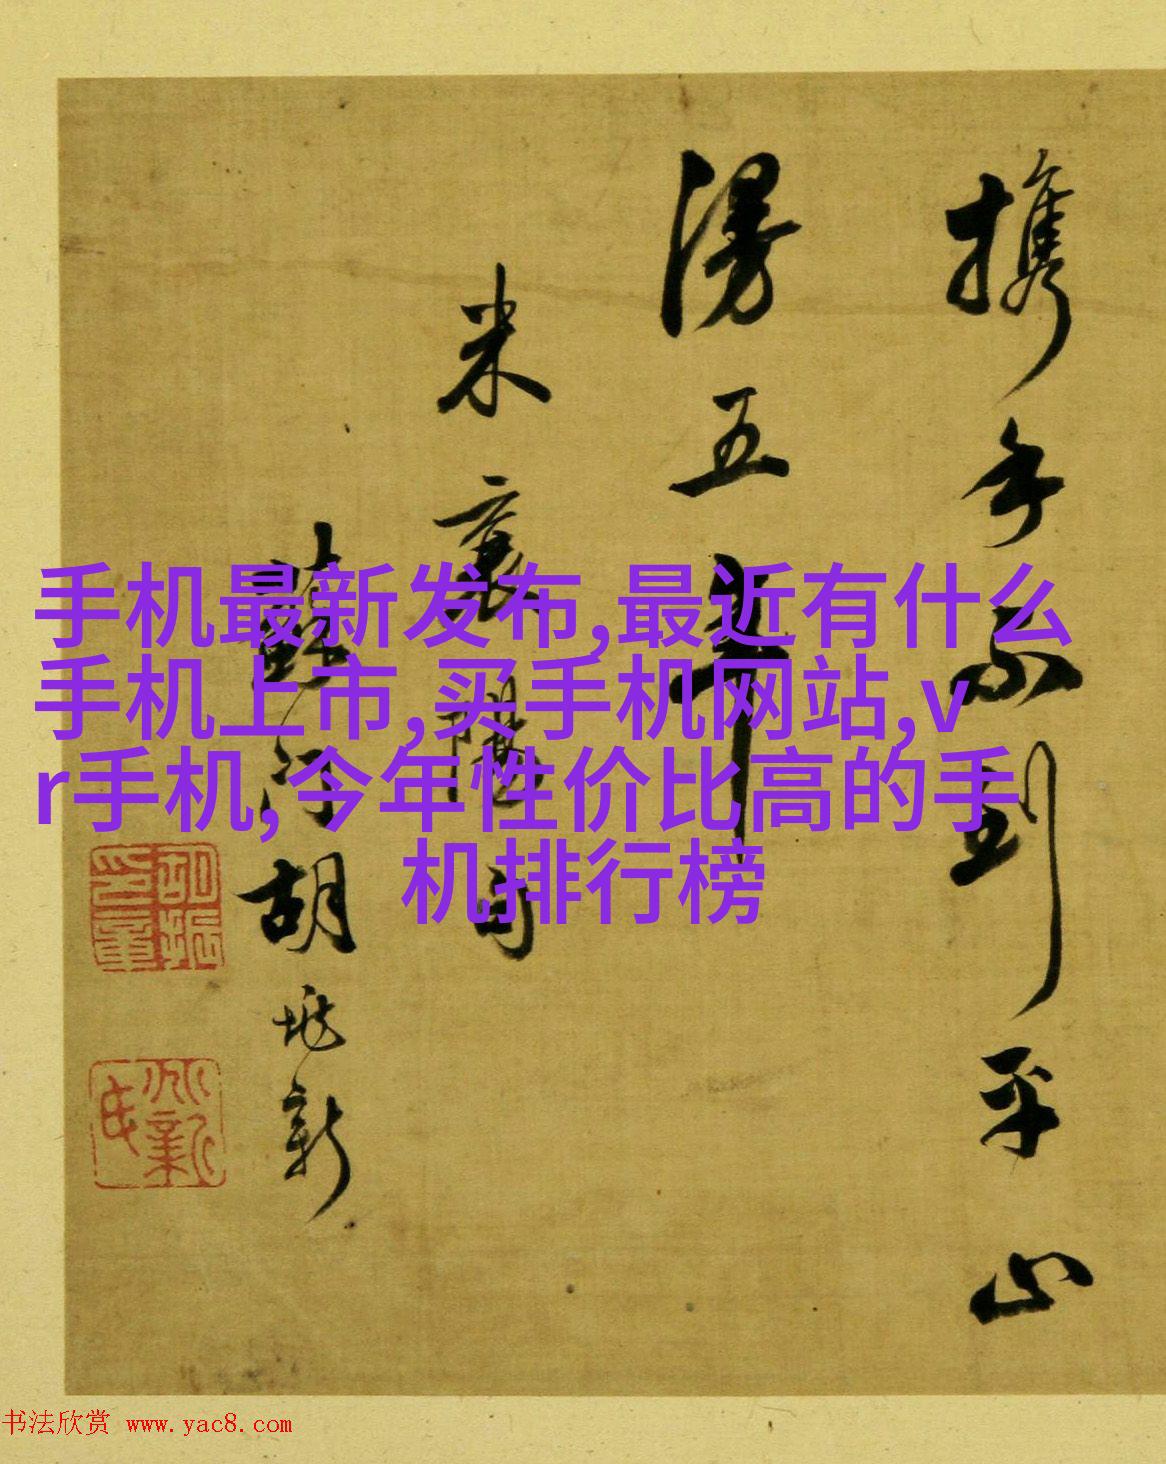 手机最新发布,最近有什么
手机上市,买手机网站,v
r手机,今年性价比高的手
机排行榜
携手不到平山
五年
米襄陽句
蘇胡新
书法欣赏 www.yac8.com